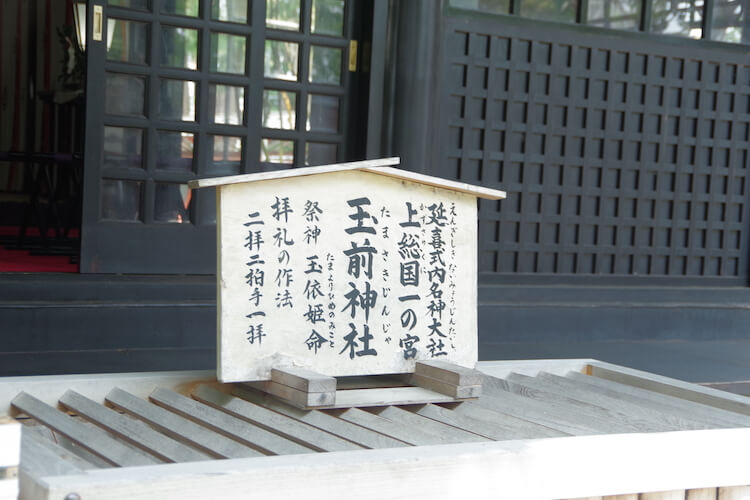 延喜式内名神大社
えんぎしきだいみょうじんたいしゃ
上総国一の宮
かずさのくに
玉前神社
たまさきじんじゃ
祭神 玉依姫命
たまよりひめのみこと
拝礼の作法
二拝二拍手一拝